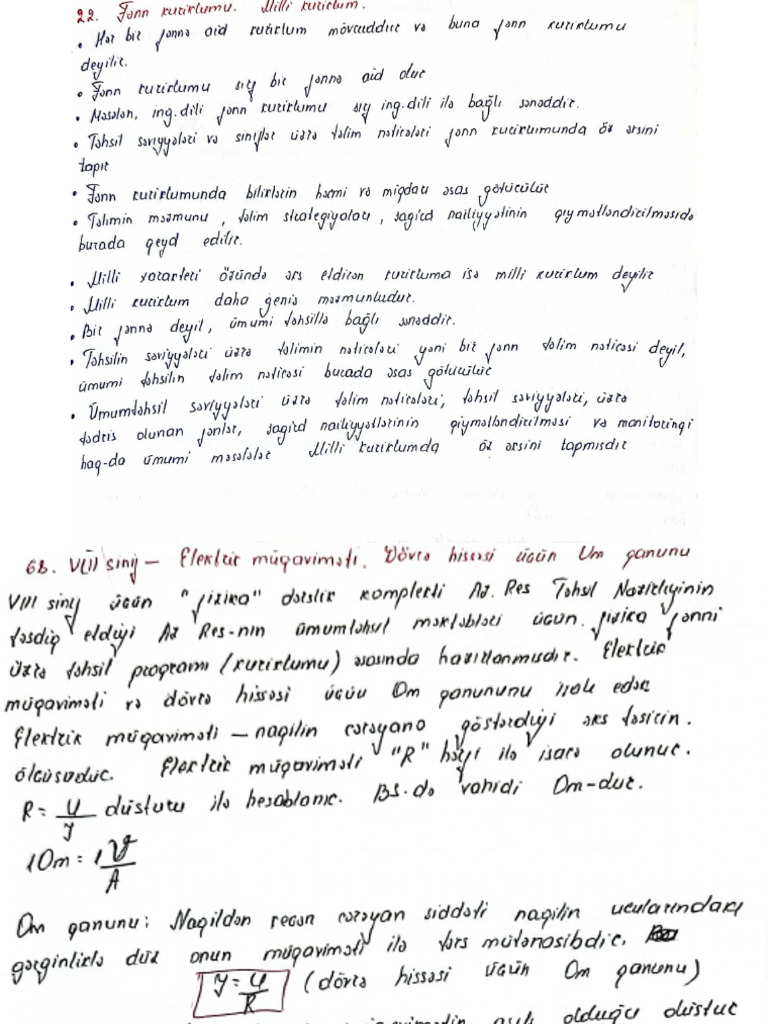 22. Fənn kurikulumu. Milli kurikulum.
• Hər bir fənnə aid kurikulum mövcuddur və buna fənn kurikulumu
deyilir.
• Fənn kurikulumu bir fənnə aid olur
• Məsələn, ing.dili fənn kurikulumu ing.dili ilə bağlı sənəddir.
• Təhsil səviyyələri və siniflər üzrə təlim nəticələri fənn kurikulumunda öz əksini
tapır
• Fənn kurikulumunda biliklərin həcmi və miqdarı əsas götürülür
• Təlimin məzmunu, təlim strategiyaları, şagird nailiyyətinin qiymətləndirilməsidə
burada qeyd edilir.
• Milli xarakteri özündə əks etdirən kurikuluma isə milli kurikulum deyilir
• Milli kurikulum daha geniş məzmunludur.
• Bir fənnə deyil, ümumi təhsillə bağlı sənəddir.
• Təhsilin səviyyələri üzrə təlimin nəticələri yəni bir fənn təlim nəticəsi deyil,
ümumi təhsilin təlim nəticəsi burada əsas götürülür
• Ümumtəhsil səviyyələri üzrə təlim nəticələri, təhsil səviyyələri, üzrə
tədris olunan fənlər, şagird nailiyyətlərinin qiymətləndirilməsi və monitoringi
haq-da ümumi məsələlər Milli kurikulumda öz əksini tapmışdır
68. VIII sinif – Elektrik müqaviməti. Dövrə hissəsi üçün Om qanunu
VIII sinif üçün "fizika" dərslik komplekti Az. Res Təhsil Nazirliyinin
təsdiq etdiyi Az Res-nın ümumtəhsil məktəbləri üçün fizika fənni
üzrə təhsil proqramı (kurikulumu) əsasında hazırlanmışdır. Elektrik
müqaviməti və dövrə hissəsi üçün Om qanununu izah edək
Elektrik müqaviməti – naqilin cərəyana göstərdiyi əks təsirin
ölçüsüdür. Elektrik müqaviməti "R" hərfi ilə işarə olunur.
R = U/I düsturu ilə hesablanır. BS-də vahidi Om-dur.
1Om = 1 V/A
Om qanunu: Naqildən keçən cərəyan şiddəti naqilin uclarındakı
gərginliklə düz onun müqaviməti ilə tərs mütənasibdir.
I = U/R (dövrə hissəsi üçün Om qanunu)
asılı olduğu düstur